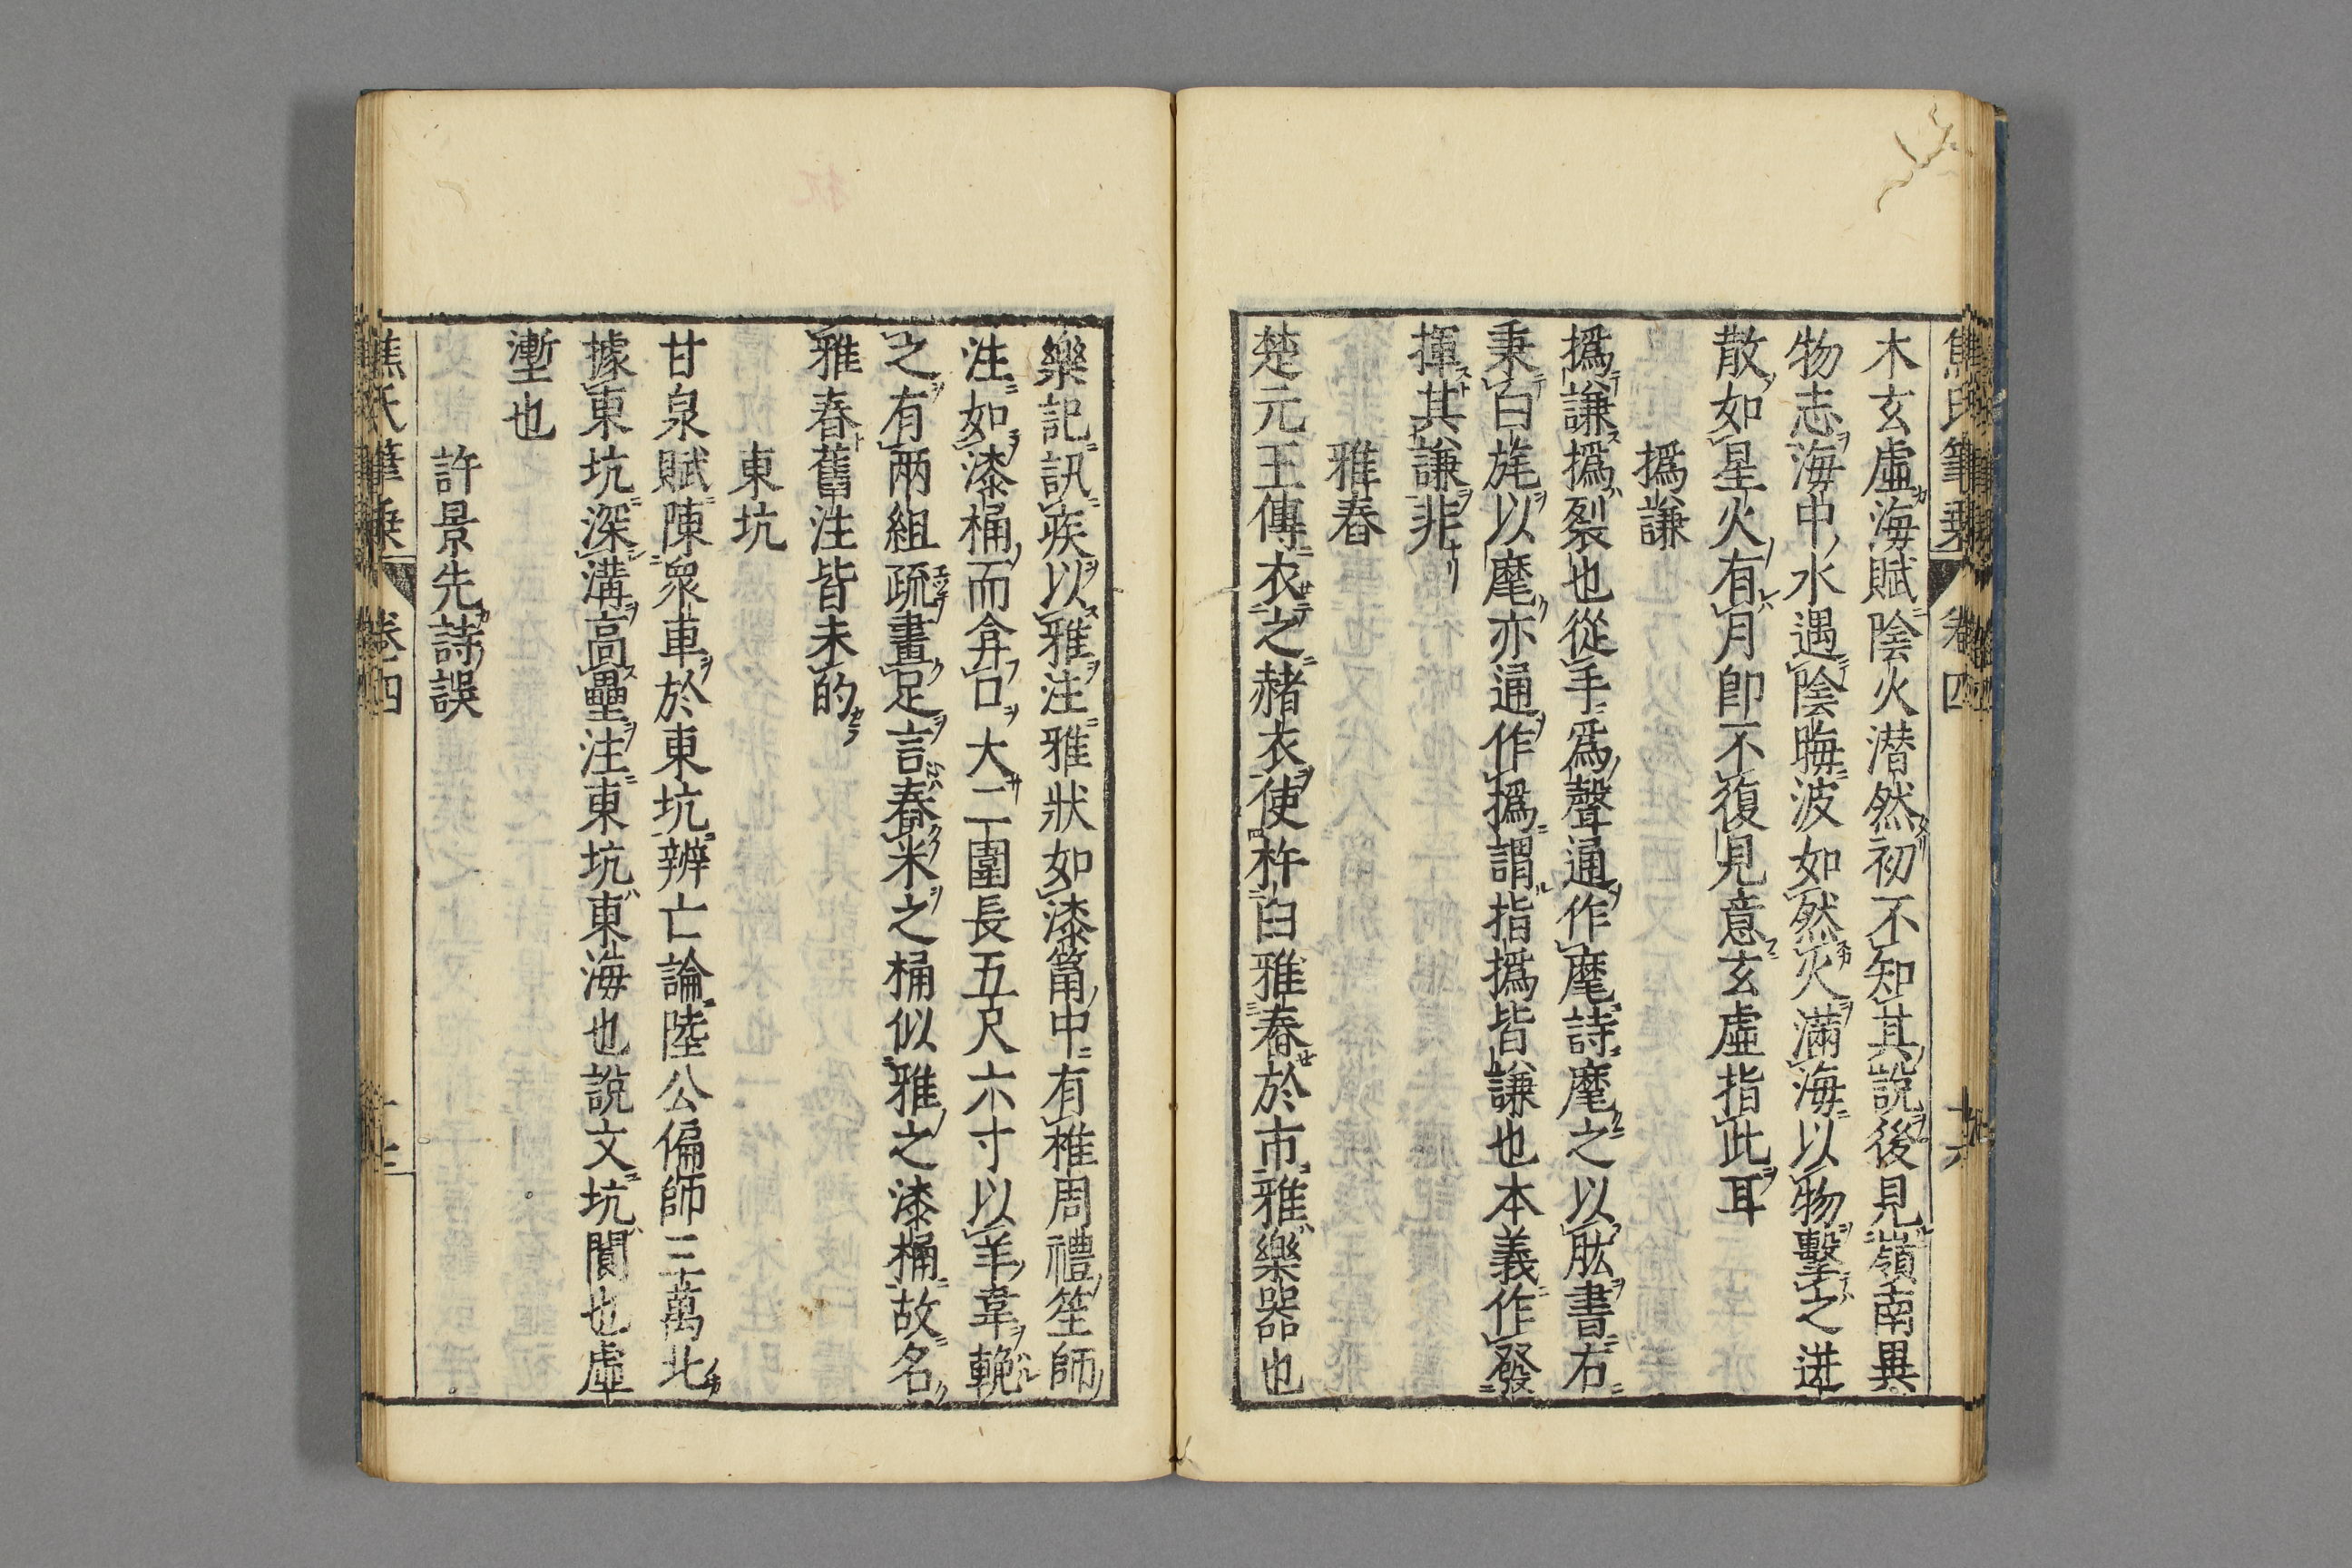 焦氏筆乗 卷四
木玄虛海賦陰火潜然初不知其說後見嶺南異
物志海中水遇陰晦波如然火滿海以物擊之迸
散如星火有月卽不復見意玄虛指此耳
撝謙
撝謙撝裂也從手爲聲通作麾詩麾之以肱書右
秉白旄以麾亦通作撝謂指撝皆謙也本義作發
揮其謙非
雅舂
楚元王傳衣之赭衣使杵臼雅舂於市雅樂器也
樂記訊疾以雅注雅狀如漆筩中有椎周禮笙師
注如漆桶而弇口大二圍長五尺六寸以羊韋鞔
之有兩組疏畫足言舂米之桶似雅之漆桶故名
雅舂舊注皆未的
東坑
甘泉賦陳衆車於東坑辨亡論陸公偏師三萬北
據東坑深溝高壘注東坑東海也說文坑閬也虛
壍也
許景先詩誤
焦氏筆乗 卷四